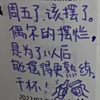 周五了，该摆了。
偶尔的摆烂，
是为了以后
能摆得更熟练。
干杯！